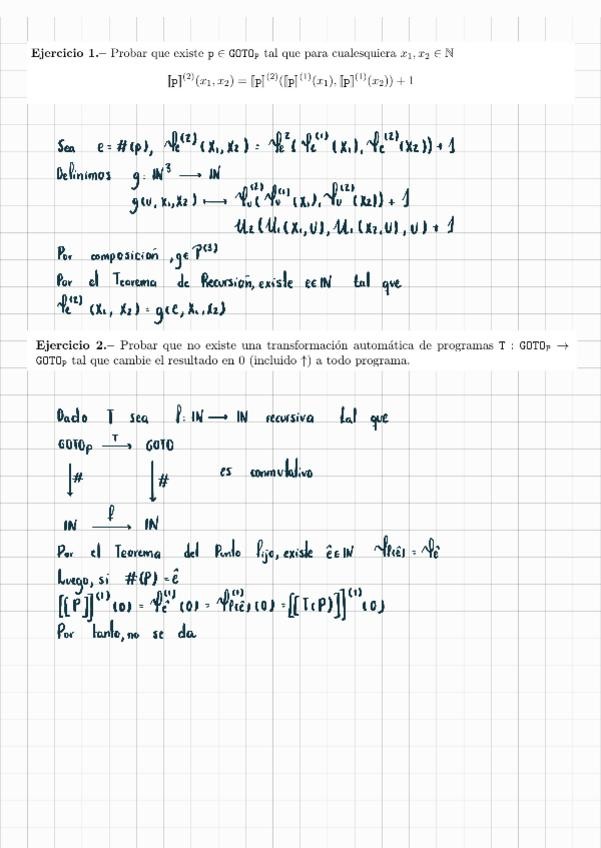 Ejercicio 1.– Probar que existe p ∈ GOTOₚ tal que para cualesquiera x₁, x₂ ∈ ℕ
⟦p⟧⁽²⁾(x₁, x₂) = ⟦p⟧⁽²⁾(⟦p⟧⁽¹⁾(x₁), ⟦p⟧⁽¹⁾(x₂)) + 1
Sea e = #(p), φₑ⁽²⁾(x₁, x₂) = φₑ²(φₑ⁽¹⁾(x₁), φₑ⁽²⁾(x₂)) + 1
Definimos g: ℕ³ ⟶ ℕ
g(u, x₁, x₂) ⟼ φᵤ⁽²⁾(φᵤ⁽¹⁾(x₁), φᵤ⁽²⁾(x₂)) + 1
U₂(U₁(x₁, u), U₁(x₂, u), u) + 1
Por composición, g∈ P⁽³⁾
Por el Teorema de Recursión, existe e∈ℕ tal que
φₑ⁽²⁾(x₁, x₂) = g(e, x₁, x₂)
Ejercicio 2.– Probar que no existe una transformación automática de programas T : GOTOₚ →
GOTOₚ tal que cambie el resultado en 0 (incluido ↑) a todo programa.
Dado T sea f: ℕ ⟶ ℕ recursiva tal que
GOTOₚ —T→ GOTO
↓# ↓# es conmutativo
ℕ —f→ ℕ
Por el Teorema del Punto fijo, existe ê∈ℕ φ_f(ê) = φ_ê
Luego, si #(P) = ê
[[P]]⁽¹⁾(0) = φ_ê⁽¹⁾(0) = φ_f(ê)⁽¹⁾(0) = [[T(P)]]⁽¹⁾(0)
Por tanto, no se da